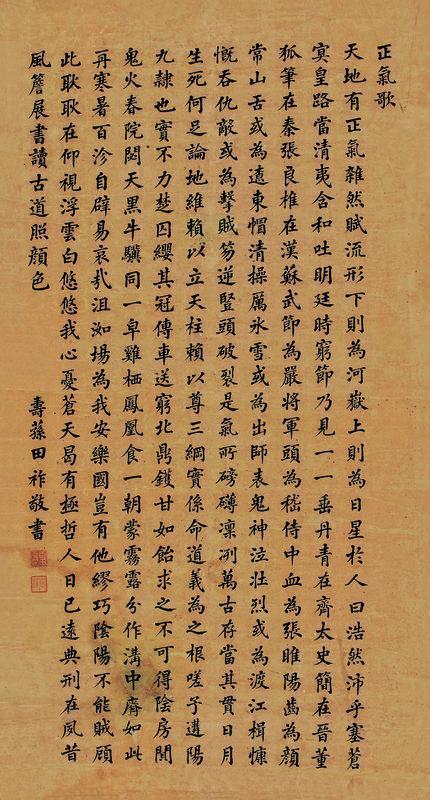 正氣歌
天地有正氣雜然賦流形下則為河嶽上則為日星於人曰浩然沛乎塞蒼
冥皇路當清夷含和吐明廷時窮節乃見一一垂丹青在齊太史簡在晉董
狐筆在秦張良椎在漢蘇武節為嚴將軍頭為嵇侍中血為張睢陽齒為顏
常山舌或為遼東帽清操厲氷雪或為出師表鬼神泣壯烈或為渡江楫慷
慨吞仇敵或為擊賊笏逆豎頭破裂是氣所磅礴凛冽萬古存當其貫日月
生死何足論地維賴以立天柱賴以尊三綱實係命道義為之根嗟予遘陽
九隸也實不力楚囚纓其冠傳車送窮北鼎鑊甘如飴求之不可得陰房闃
鬼火春院閟天黑牛驥同一皁雞栖鳳凰食一朝蒙霧露分作溝中瘠如此
再寒暑百沴自辟易哀哉沮洳場為我安樂國豈有他繆巧陰陽不能賊顧
此耿耿在仰視浮雲白悠悠我心憂蒼天曷有極哲人日已遠典刑在夙昔
風簷展書讀古道照顏色
壽蓀田祚敬書